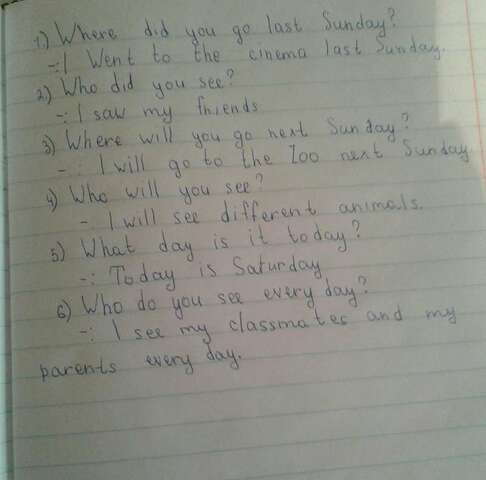 1) Where did you go last Sunday?
-: I Went to the cinema last Sunday.
2) Who did you see?
-: I saw my friends
3) Where will you go next Sunday?
-: I will go to the Zoo next Sunday
4) Who will you see?
- I will see different animals.
5) What day is it today?
-: Today is Saturday
6) Who do you see every day?
-: I see my classmates and my
parents every day.